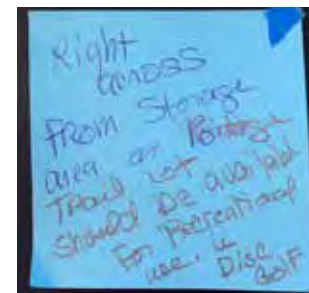 Right
across
From Storage
area on Portage
Trail Lot
should be availabl
For Recreational
use, u
Disc
Golf